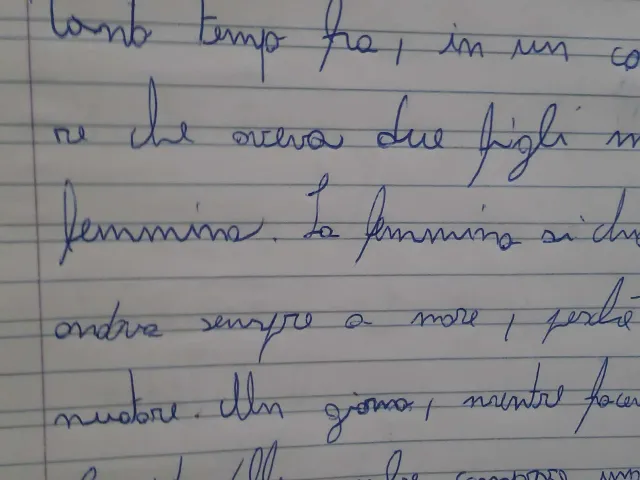 tanto tempo fa, in un co
re che aveva due figli m
femmina. La femmina si chi
andava sempre a mare, perchè
nuotare. Un giorno, mentre face